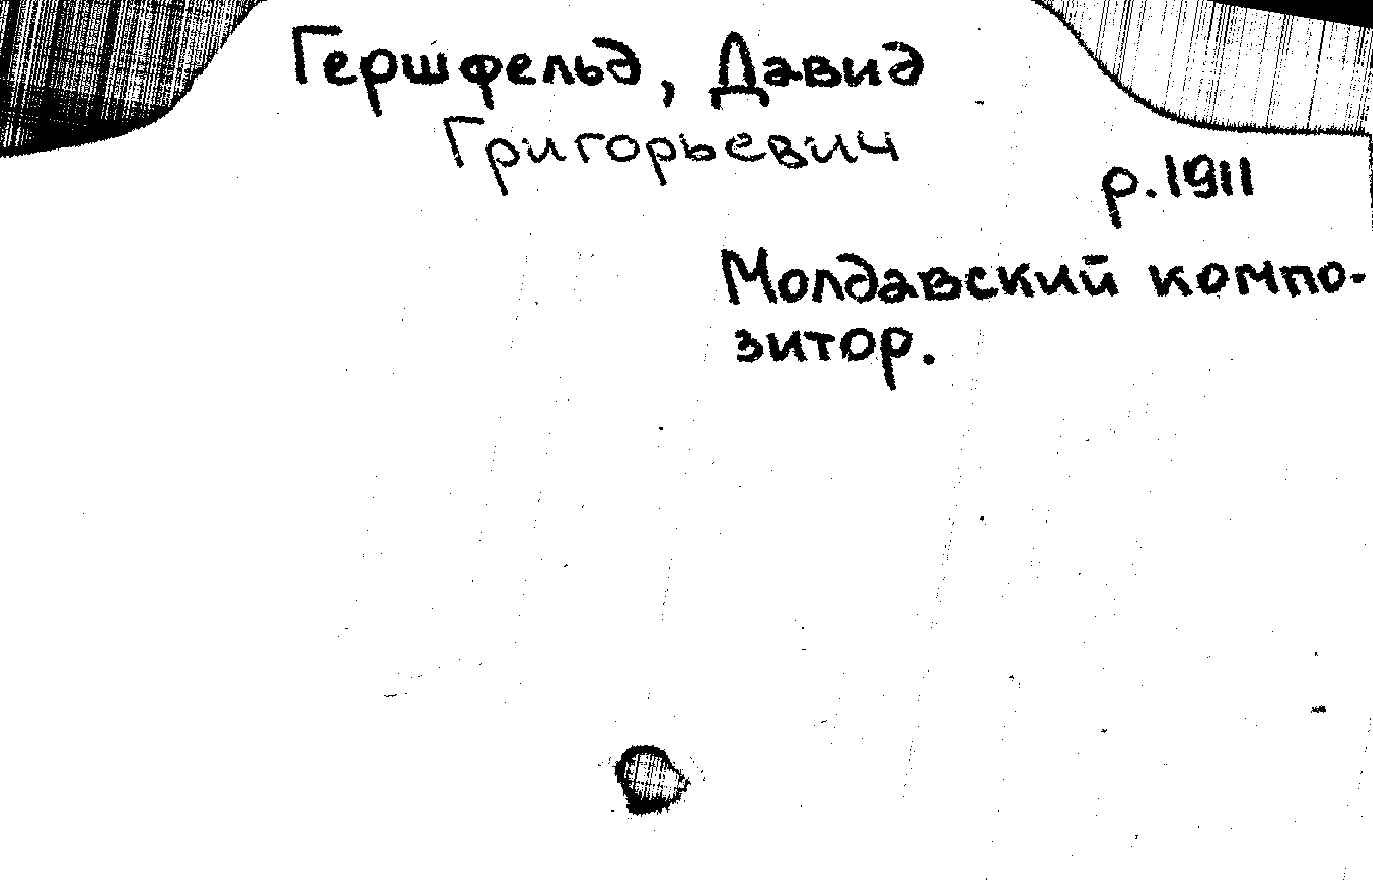 Гершфельд, Давид
Григорьевич
р. 1911
Молдавский компо-
зитор.